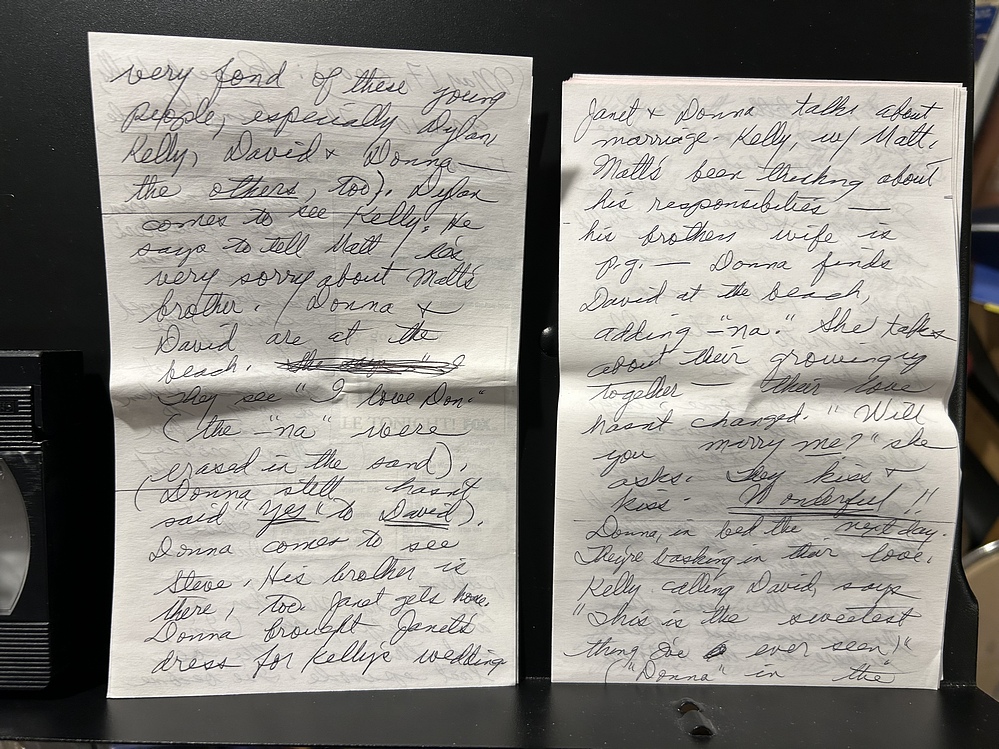 very fond of these young
people, especially Dylan,
Kelly, David & Donna —
the others, too). Dylan
comes to see Kelly. He
says to tell Matt he's
very sorry about Matt's
brother. Donna &
David are at the
beach.
They see "I love Don."
(the "na" were
erased in the sand).
(Donna still hasn't
said "Yes" to David).
Donna comes to see
Steve. His brother is
there, too. Janet gets home.
Donna brought Janet's
dress for Kelly's wedding
Janet & Donna talks about
marriage. Kelly, w/ Matt.
Matt's been thinking about
his responsibilies —
his brothers wife is
p.g. — Donna finds
David at the beach,
adding — "na." She talks
about their growing
together — their love
hasnt changed. "Will
you marry me?" she
asks. They kiss &
kiss. Wonderful!!
Donna, in bed the next day.
They're basking in their love.
Kelly calling David, says
"This is the sweetest
thing I've ever seen!"
("Donna" in the